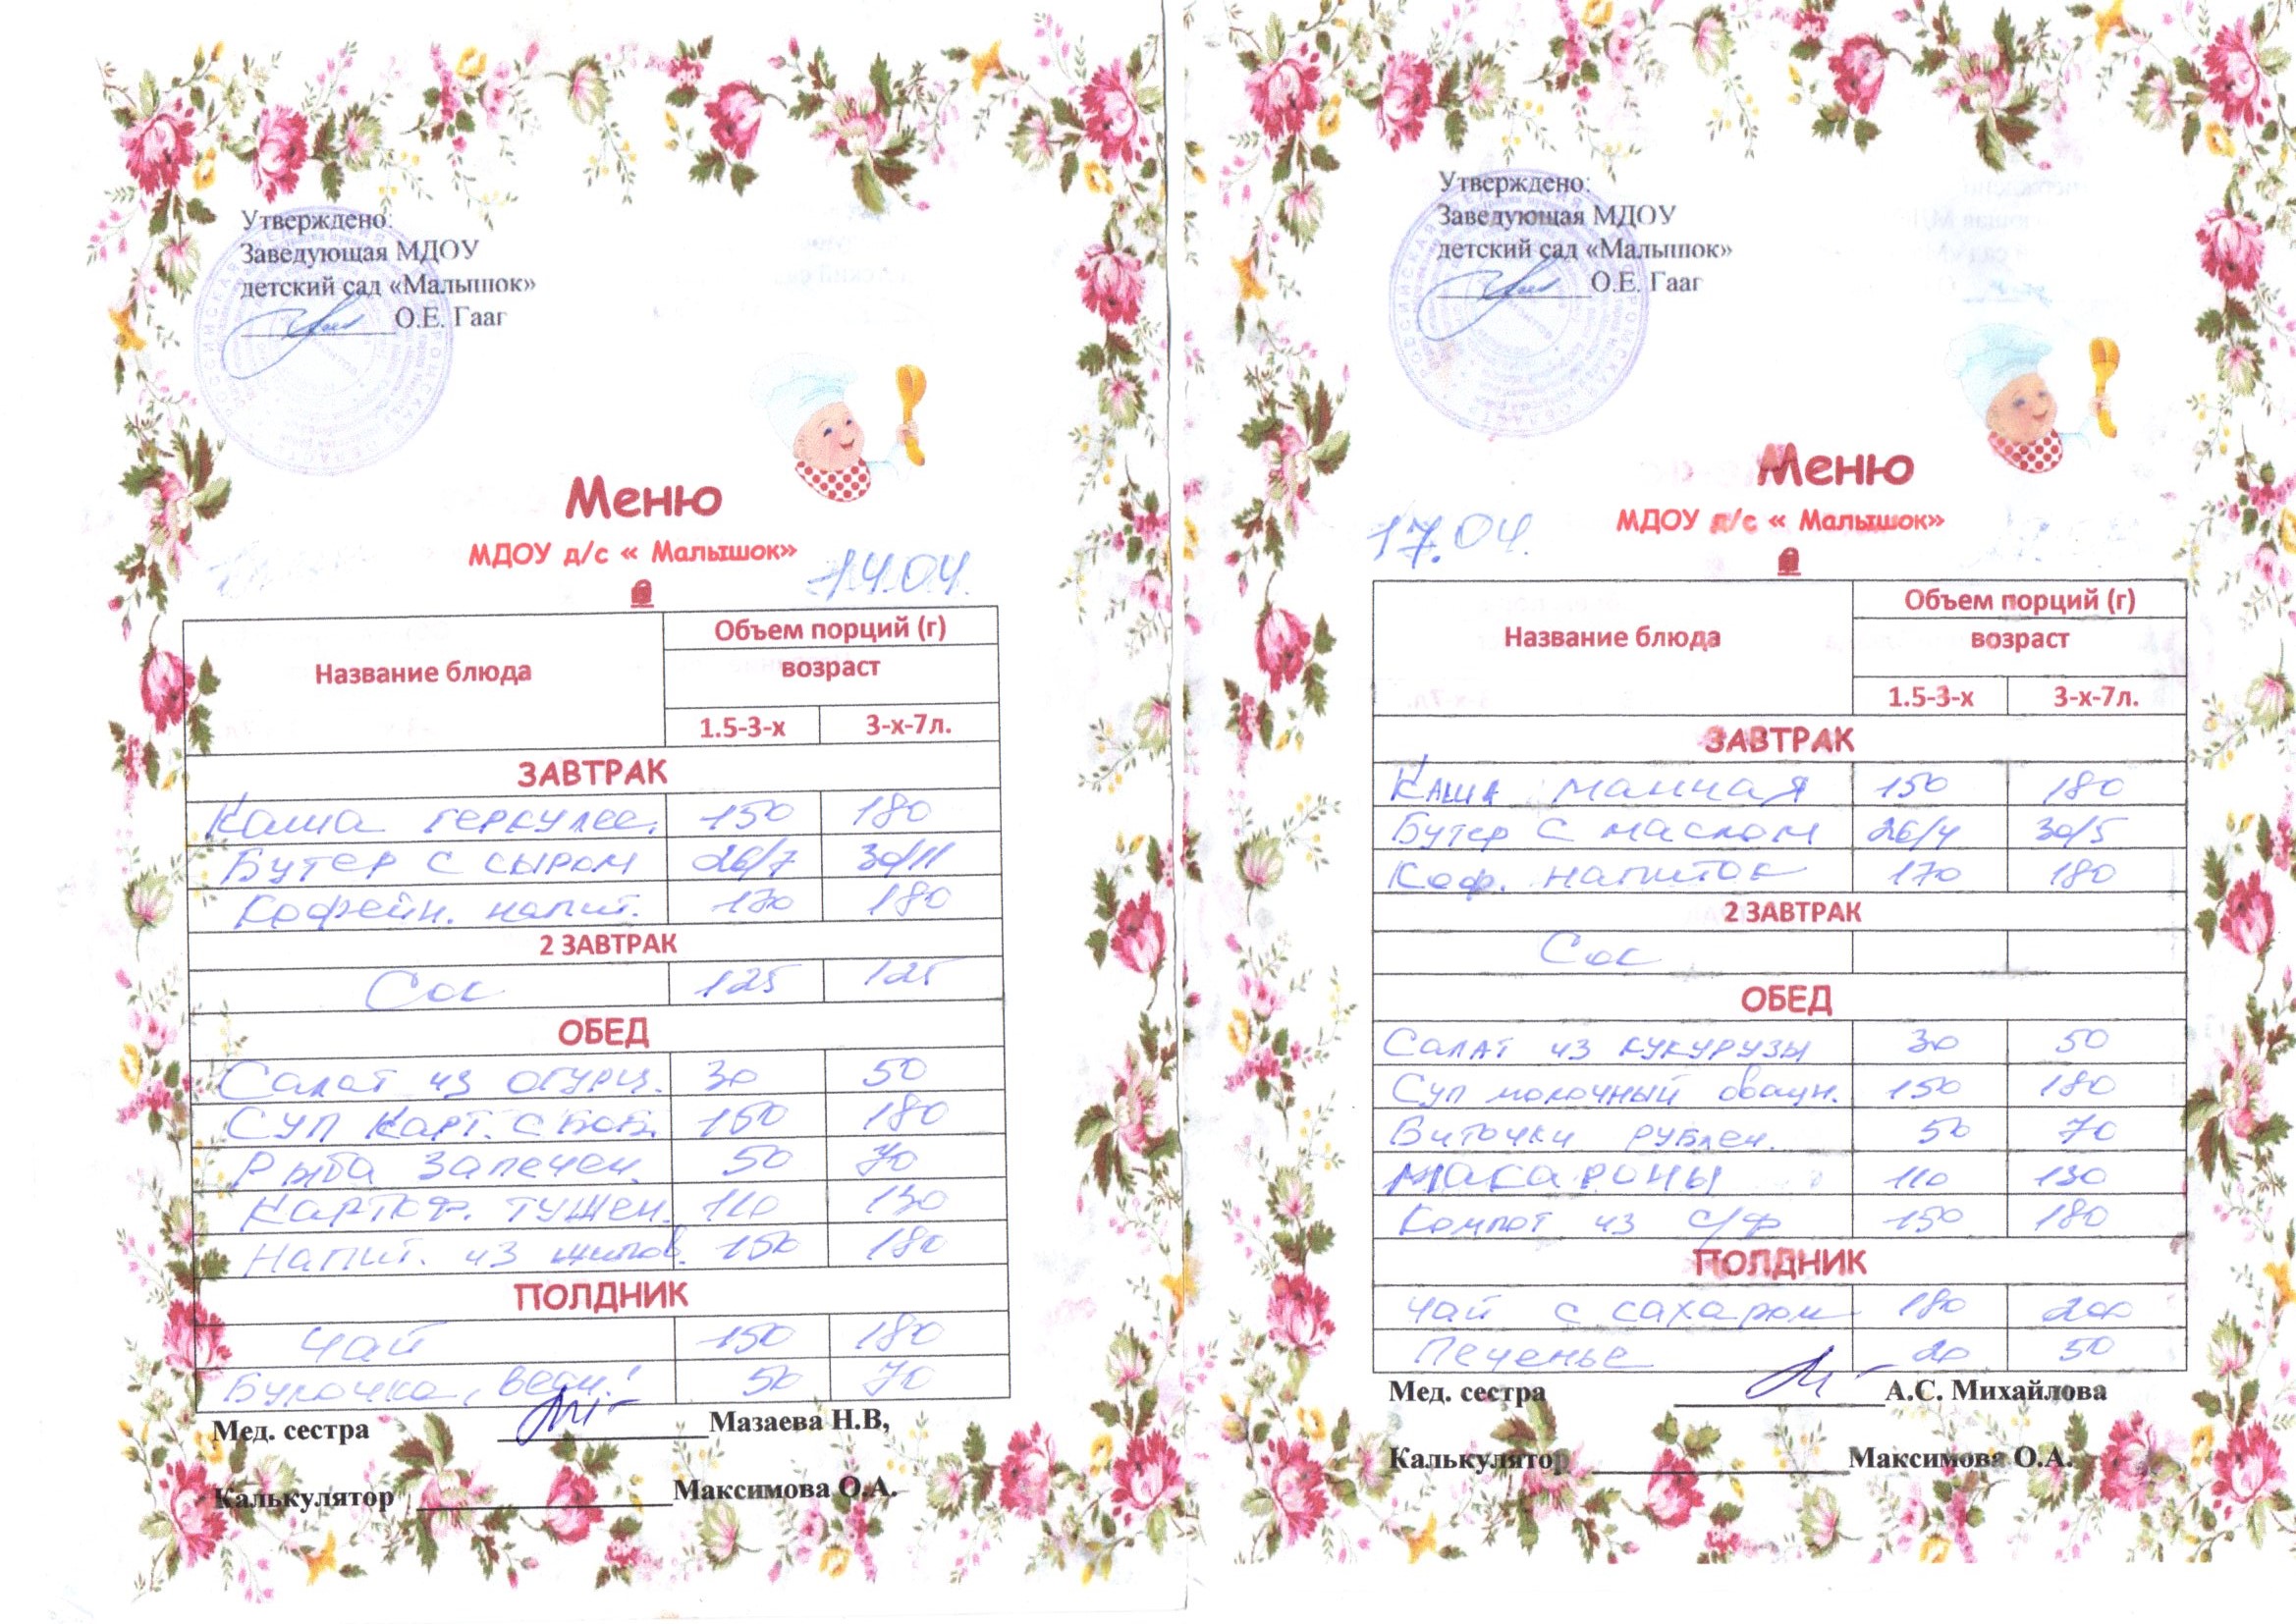 Утверждено:
Заведующая МДОУ
детский сад «Малышок»
О.Е. Гааг
Меню
МДОУ д/с « Малышок»
14.04.
Название блюда
Объем порций (г)
возраст
1.5-3-х 3-х-7л.
ЗАВТРАК
Каша геркулес. 150 180
Бутер с сыром 26/7 30/11
Кофейн. напит. 170 180
2 ЗАВТРАК
Сок 125 125
ОБЕД
Салат из огурц. 30 50
Суп карт. с боб. 150 180
Рыба запечен. 50 70
Картоф. тушен. 110 130
Напит. из шипов. 150 180
ПОЛДНИК
Чай 150 180
Булочка, 50 70
Мед. сестра Мазаева Н.В,
Калькулятор Максимова О.А.
Утверждено:
Заведующая МДОУ
детский сад «Малышок»
О.Е. Гааг
Меню
17.04.
МДОУ д/с « Малышок»
Название блюда
Объем порций (г)
возраст
1.5-3-х 3-х-7л.
ЗАВТРАК
Каша манная 150 180
Бутер с маслом 26/4 30/5
Коф. напиток 170 180
2 ЗАВТРАК
Сок
ОБЕД
Салат из кукурузы 30 50
Суп молочный 150 180
Биточки рублен. 50 70
Макароны 110 130
Компот из с/ф 150 180
ПОЛДНИК
Чай с сахаром 180 200
Печенье 20 50
Мед. сестра А.С. Михайлова
Калькулятор Максимова О.А.